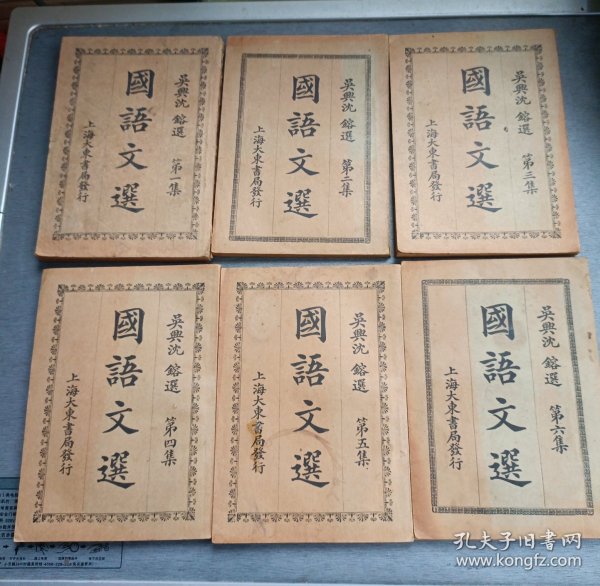 吳興沈 鎔選 第一集
國語文選
上海大東書局發行
吳興沈 鎔選 第二集
國語文選
上海大東書局發行
吳興沈 鎔選 第三集
國語文選
上海大東書局發行
吳興沈 鎔選 第四集
國語文選
上海大東書局發行
吳興沈 鎔選 第五集
國語文選
上海大東書局發行
吳興沈 鎔選 第六集
國語文選
上海大東書局發行
孔夫子旧书网
www.kongfz.com